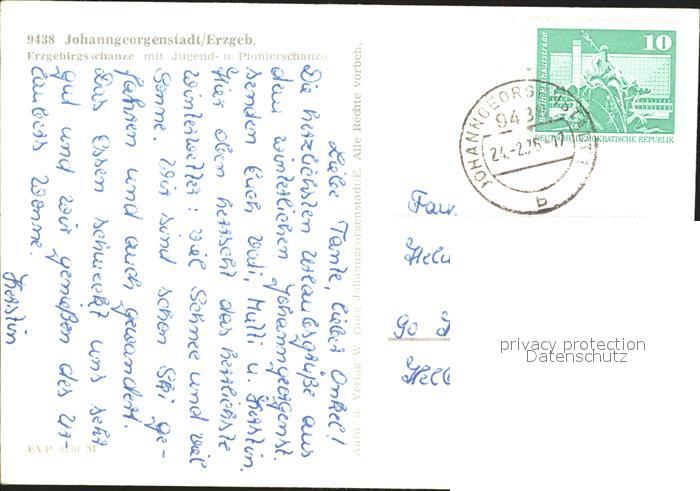 9438 Johanngeorgenstadt/Erzgeb.
Erzgebirgsschanze mit Jugend- u. Pionierschanze
Liebe Tante, lieber Onkel!
Die herzlichsten Urlaubsgrüße aus
dem winterlichen Johanngeorgenst.
senden Euch Vati, Mutti u. Kerstin.
Hier oben herrscht das herrlichste
Winterwetter: viel Schnee und viel
Sonne. Wir sind schon Ski ge-
fahren und auch gewandert.
Das Essen schmeckt uns sehr
gut und wir genießen des Ur-
laubers Wonne.
Kerstin
EVP 0,20 M
Auth. u. Verlag W. Georg Johanngeorgenstadt/E. Alle Rechte vorbeh.
10
Berlin, Rathausstraße
DEUTSCHE DEMOKRATISCHE REPUBLIK
JOHANNGEORGENSTADT 1
943
24.-2.76-17
b
Fam.
Helm
90
Hell
privacy protection
Datenschutz